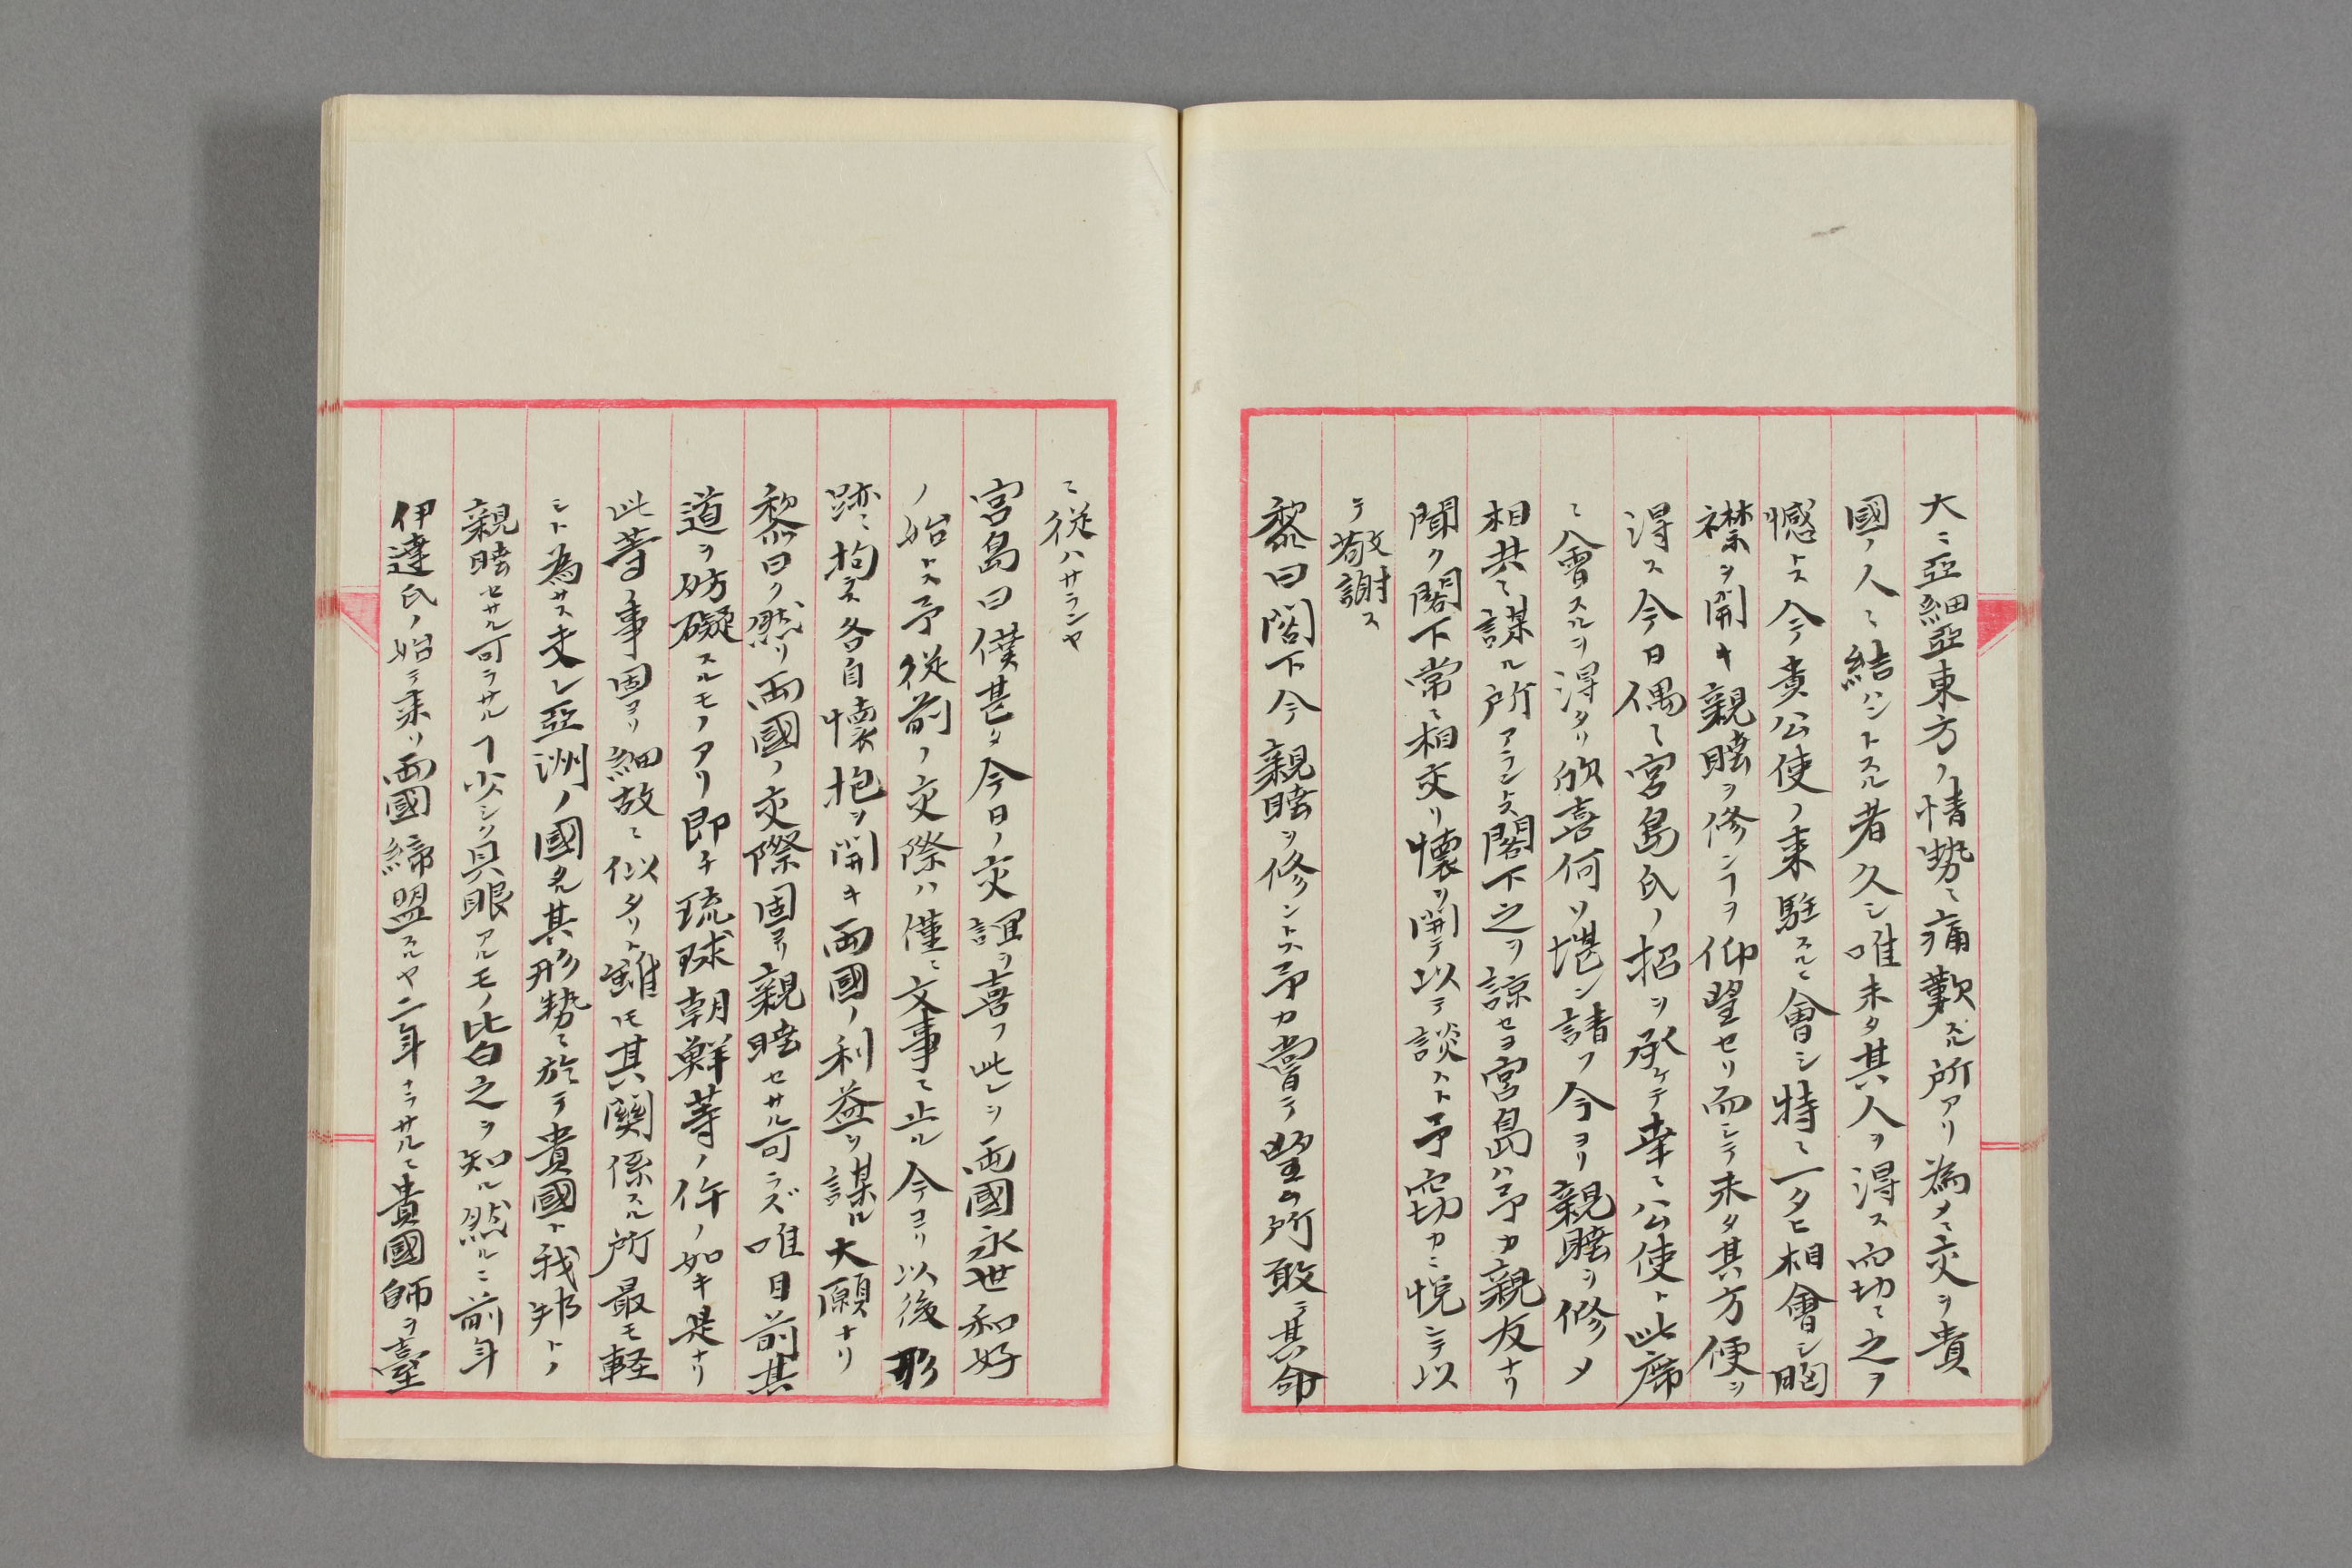 大ニ亞細亞東方ノ情勢ニ痛歎スル所アリ為メニ交ヲ貴
國ノ人ニ結ハントスル者久シ唯未タ其人ヲ得ス窃ニ之ヲ
憾トス今テ貴公使ノ来駐スルニ會シ特ニ一タヒ相會シ胸
襟ヲ開キ親睦ヲ修ンヿヲ仰望セリ而シテ未タ其方便ヲ
得ス今日偶ニ宮島氏ノ招ヲ承ケテ幸ニ公使ト此席
ニ會スルヲ得タリ欣喜何ソ堪ン請フ今ヨリ親睦ヲ修メ
相共ニ謀ル所アラントス閣下之ヲ諒セヨ宮島ハ予カ親友ナリ
聞ク閣下常ニ相交リ懐ヲ開テ以テ談スト予窃カニ悦ンテ以
テ敬謝ス
黎曰閣下今親睦ヲ修ントス予カ嘗テ望ム所敢テ其命
ニ従ハサランヤ
宮島曰僕甚タ今日ノ交誼ヲ喜フ此レヲ両國永世和好
ノ始トス予従前ノ交際ハ僅ニ文事ニ止ル今ヨリ以後形
跡ニ拘ラス各自懐抱ヲ開キ両國ノ利益ヲ謀ル大願ナリ
黎曰ク然リ両國ノ交際固ヨリ親睦セサル可ラズ唯目前其
道ヲ妨礙スルモノアリ即チ琉球朝鮮等ノ件ノ如キ是ナリ
此等ノ事固ヨリ細故ニ似タリト雖ㇳモ其關係スル所最モ軽
シト為サス夫レ亞洲ノ國タル其形勢ニ於テ貴國ト我邦トノ
親睦セサル可ラサルヿ少シク具眼アルモノ皆之ヲ知ル然ルニ前年
伊達氏ノ始テ来リ両國締盟スルヤ二年ナラサルニ貴國師ヲ臺